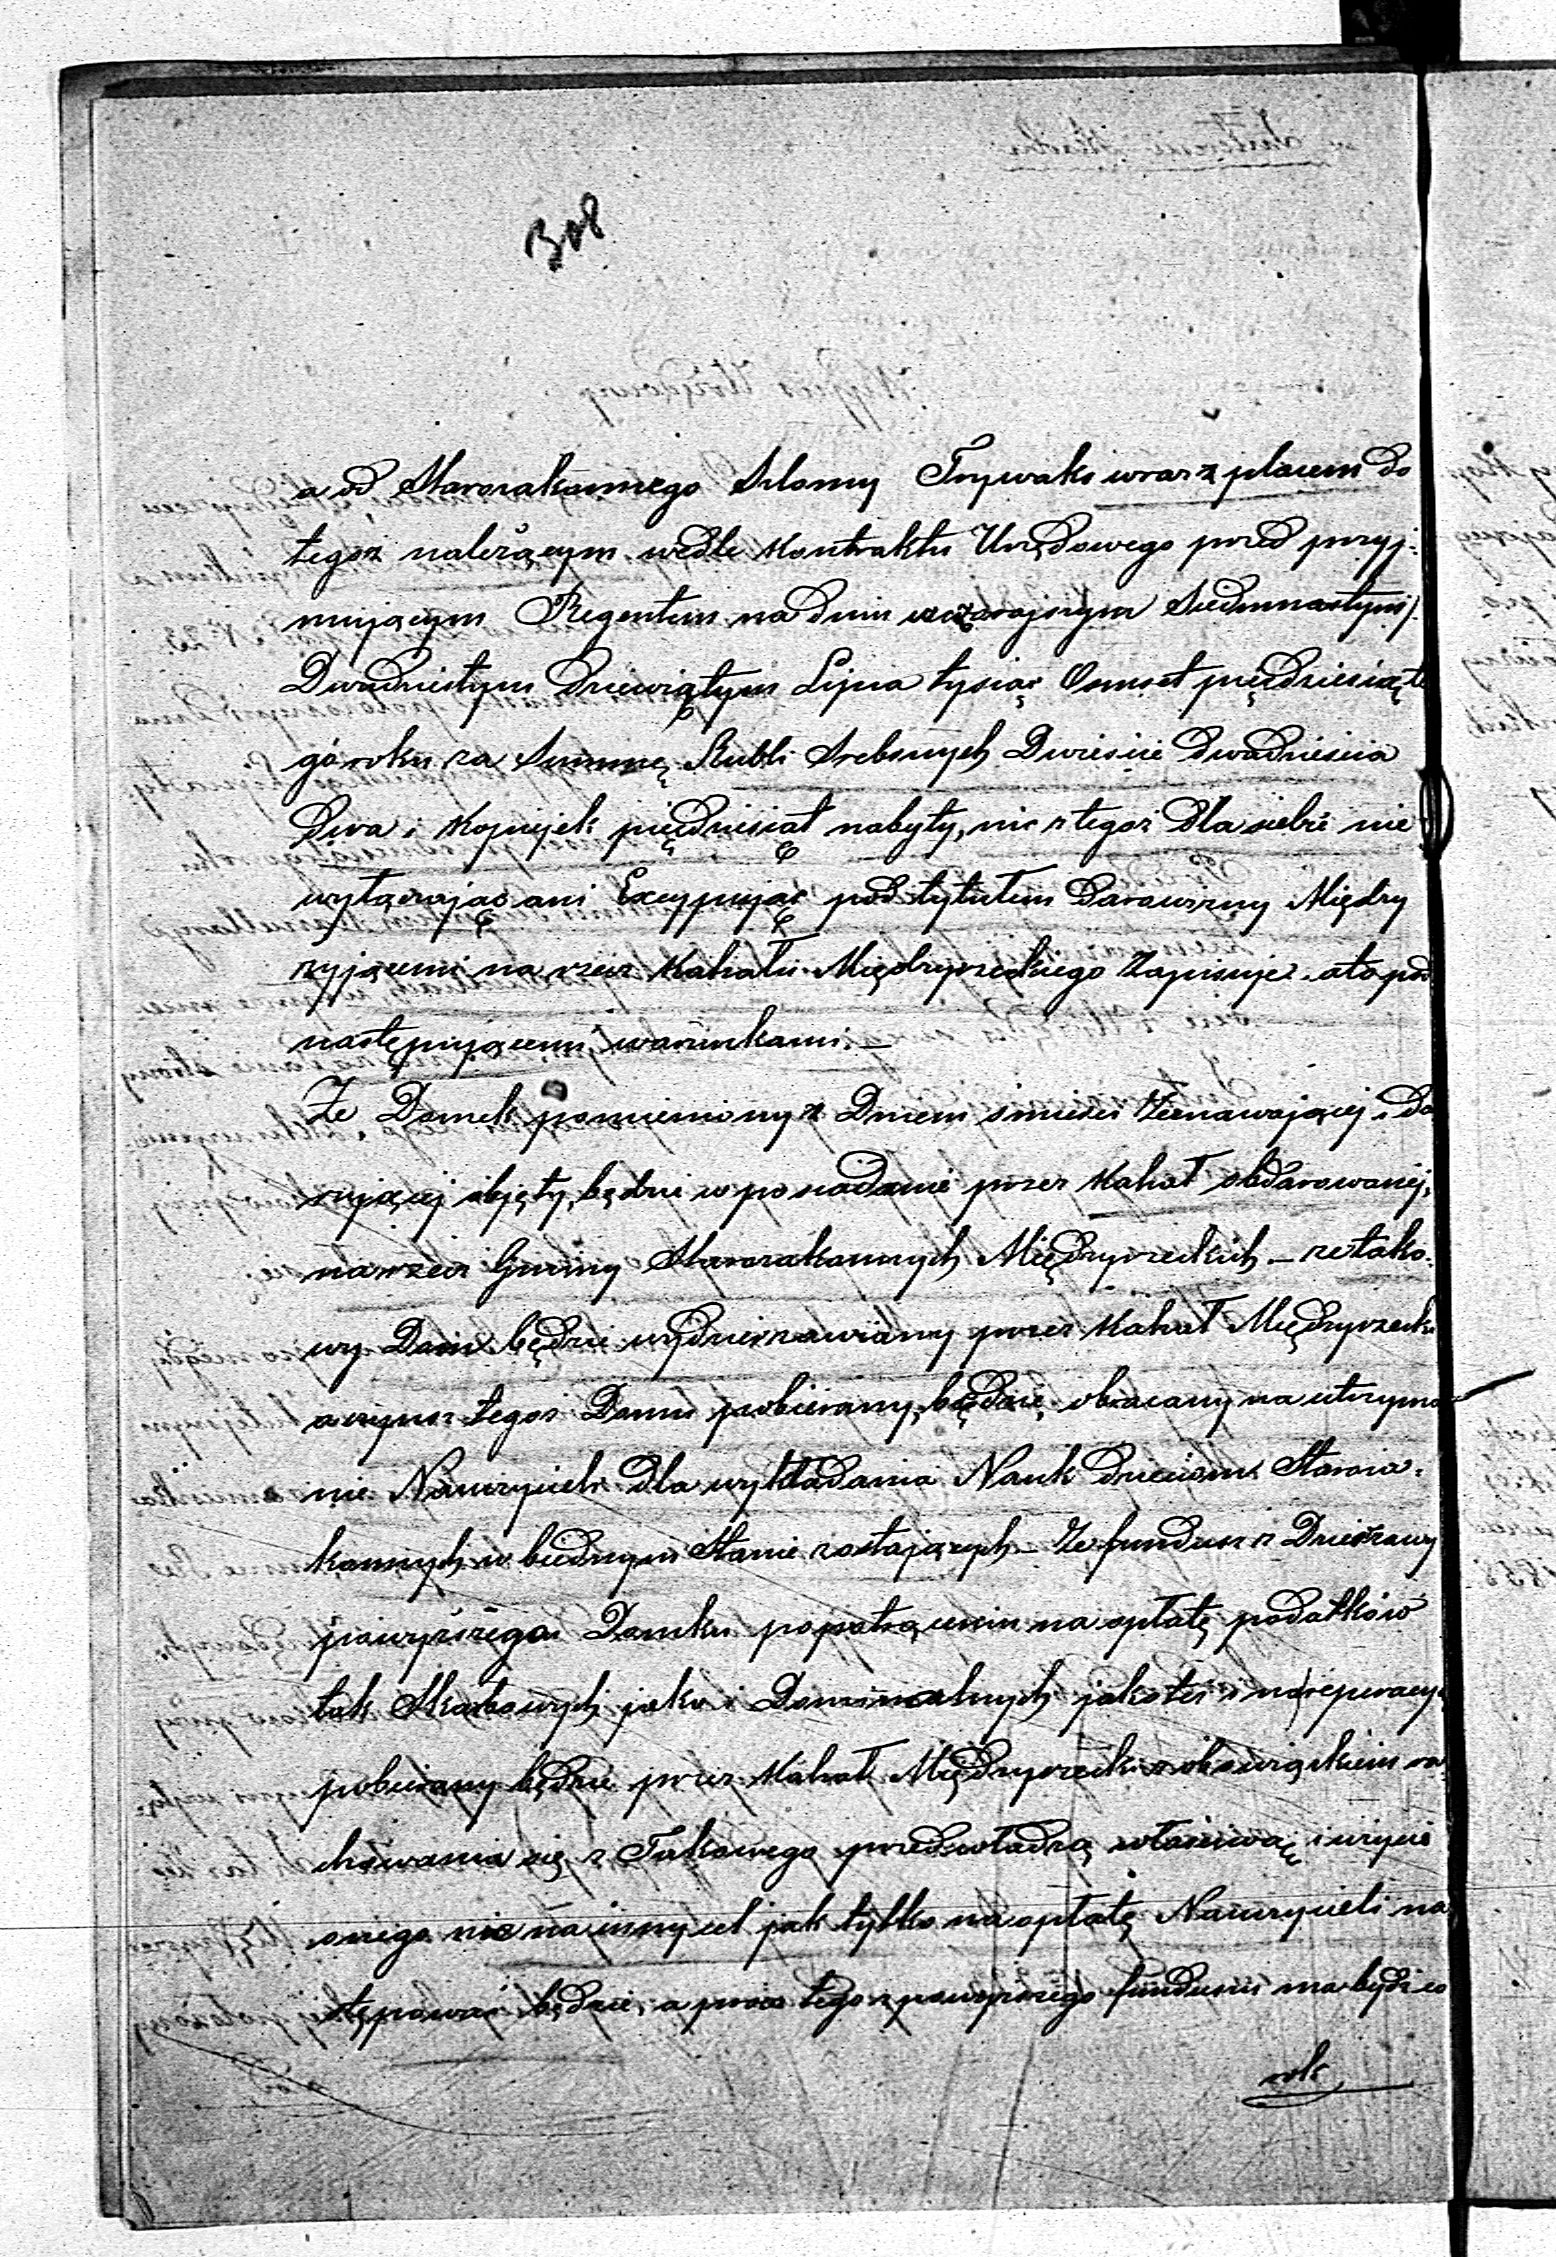 308
a od Starozakonnego Szlomy Trywaks wraz z placem do
tegoż należącym wedle Kontraktu Urzędowego przed przyj-
mującym Regentem na dniu wczorajszym Siedmnastym/
Dwudziestym dziewiątym Lipca tysiąc Osmset pięćdziesiąte
go roku za Summę Rubli Srebrnych Dwieście dwadzieścia
dwa i Kopiejek pięćdziesiąt nabyty, nic z tegoż dla siebie nie
wyłączając ani Excypując pod tytułem darowizny Między
żyjącemi na rzecz Kahału Międzyrzeckiego Zapisuje a to pod
następującemi warunkami. —
Że Domek pomieniony z Dniem śmierci Zeznawającej i Da
rującej objęty, będzie w posiadanie przez Kahał obdarowanej,
na rzecz Gminy Starozakonnych Międzyrzeckich — że tako-
wy Dom będzie wydzierzawiany przez Kahał Międzyrzecki
a czynsz tegoż Domu pobierany, będzie obracany na utrzyma
nie Nauczycieli dla wykładania Nauk dzieciom Staroza-
konnych w biednym Stanie zostających — Że fundusz z Dzierżawy
powyższego Domku po potrąceniu na opłatę podatków
tak Skarbowych jako i Dominialnych jakoteż i na reperacye
pobierany będzie przez Kahał Międzyrzecki z obowiązkiem ra-
chowania się z Takowego przed władzą właściwą i użycie
onego nie na inny cel jak tylko na opłatę Nauczycieli na
stępować będzie, a prócz tego z powyższego funduszu ma być co
rok